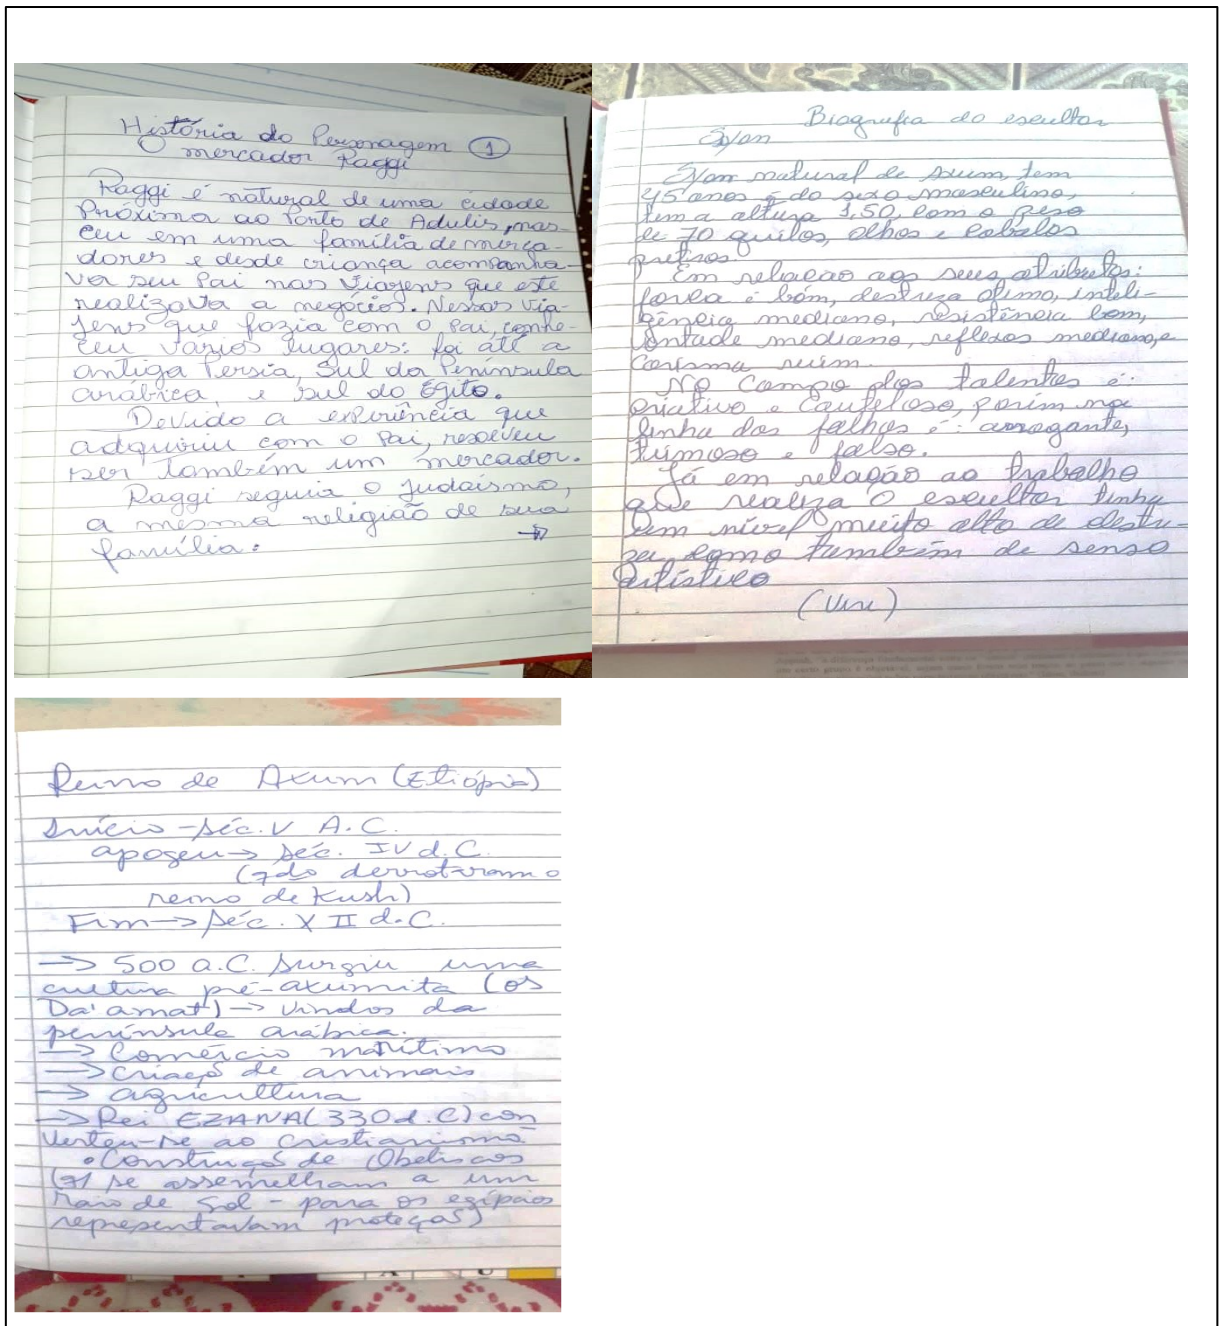 História do Personagem 1
mercador Raggi
Raggi é natural de uma cidade
Próxima ao Porto de Adulis, nas-
ceu em uma família de merca-
dores e desde criança acompanha-
va seu Pai nas viagens que este
realizava a negócios. Nessas via-
jens que fazia com o Pai, conhe-
ceu vários lugares: foi até a
antiga Persia, Sul da Península
arábica, e sul do Egito.
Devido a experiência que
adquiriu com o Pai, resolveu
ser também um mercador.
Raggi seguia o Judaísmo,
a mesma religião de sua
família.
→
Biografia do escultor
natural de Axum, tem
45 anos é do sexo masculino,
tem a altura 1,50, com o peso
de 70 quilos, olhos e cabelos
pretos.
Em relação aos seus atributos:
força é bom, destreza ótimo, inteli-
gência mediano, resistência bom,
vontade mediano, reflexos mediano, e
carisma ruim.
No campo dos talentos é:
criativo e cauteloso, porém na
linha das falhas é: arrogante,
teimoso e falso.
Já em relação ao trabalho
que realiza o escultor tinha
um nível muito alto de destre-
za, como também de senso
artístico
(Vire)
Reino de Axum (Etiópia)
Início - séc. V A.C.
apogeu → séc. IV d.C.
(qdo derrotaram o
reino de Kush)
Fim → séc. XII d.C.
→ 500 a.C. surgiu uma
cultura pré-axumita (os
Da'amat) → vindos da
península arábica.
→ Comércio marítimo
→ criação de animais
→ agricultura
→ Rei EZANA (330 d.C) con
verteu-se ao cristianismo
• Construção de Obeliscos
se assemelham a um
raio de sol - para os egípcios
representavam proteção)